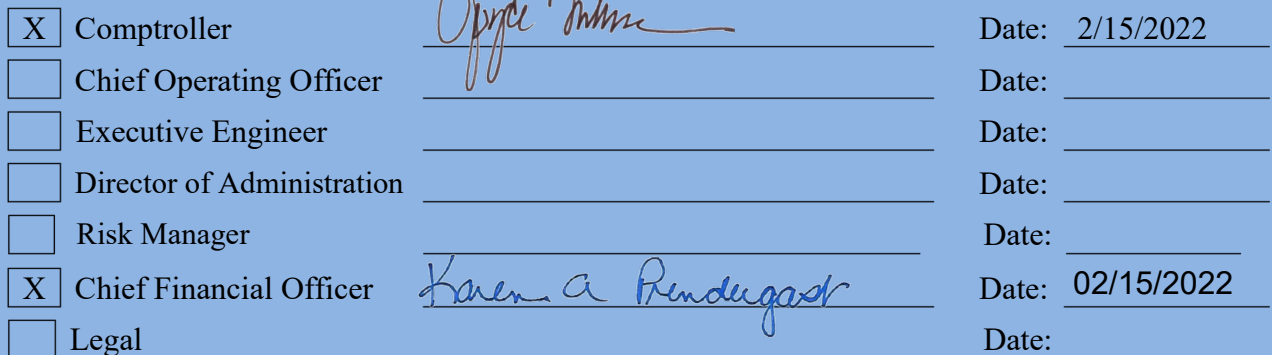 X Comptroller Date: 2/15/2022
Chief Operating Officer Date:
Executive Engineer Date:
Director of Administration Date:
Risk Manager Date:
X Chief Financial Officer Karen A Prendergast Date: 02/15/2022
Legal Date: